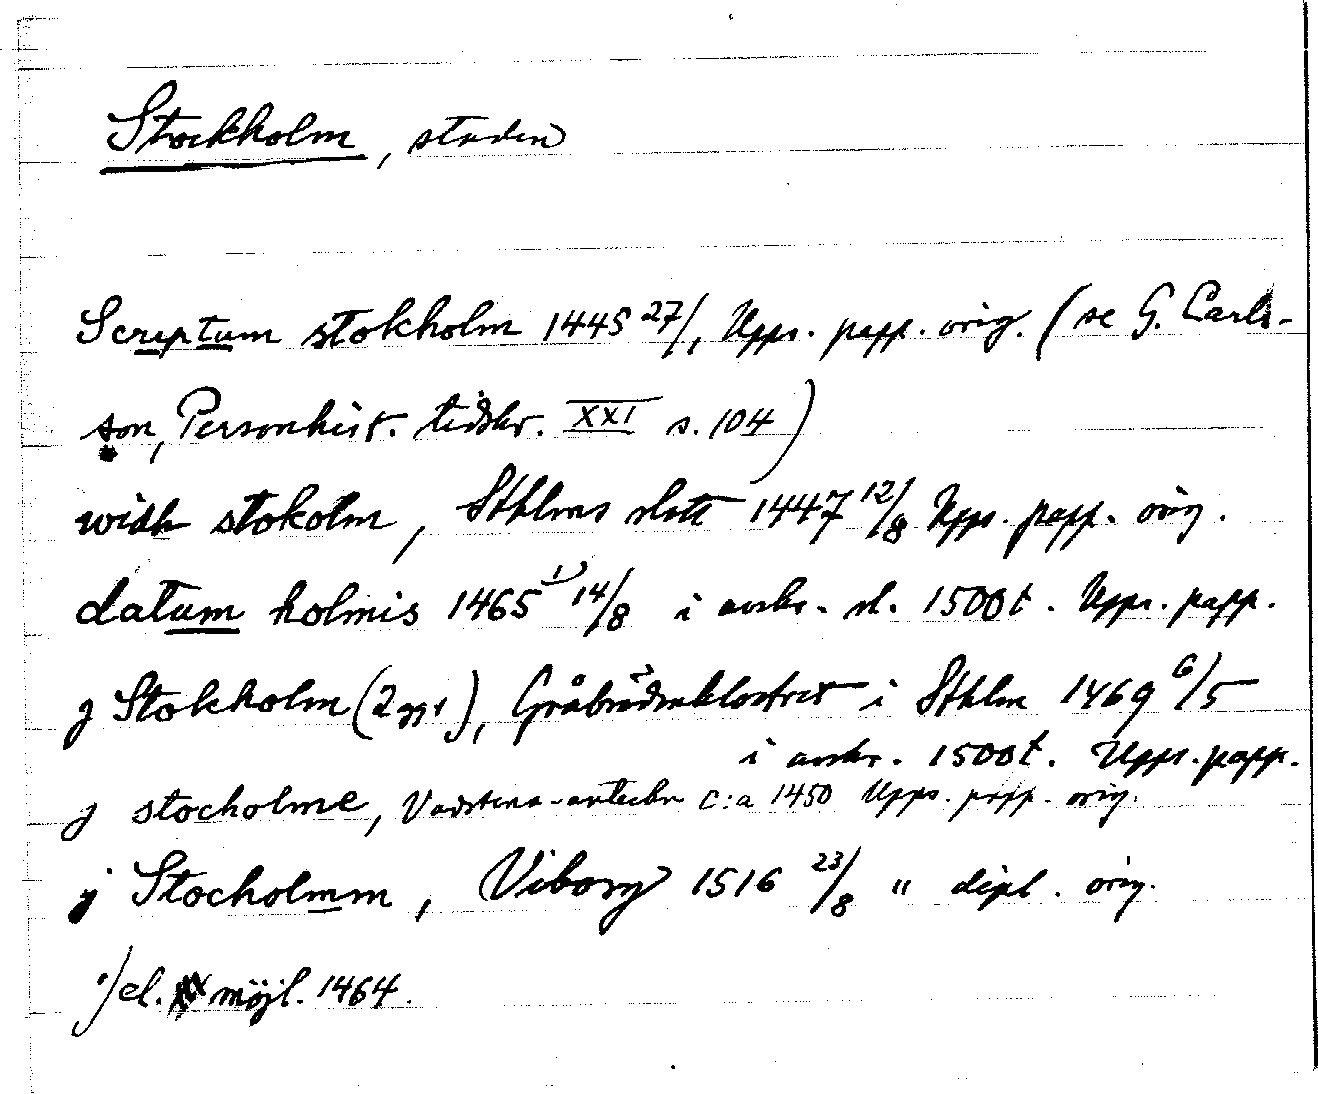 Stockholm, staden
Scriptum stokholm 1445 27/1, Upps. papp. orig. (se G. Carls-
son, Personhist. tidskr. XXI s. 104)
widh stokolm, Sthlms slott 1447 12/8 Upps. papp. orig.
datum holmis 1465 1) 14/8 i avskr. sl. 1500t. Upps. papp.
j Stokholm (2 ggr), Gråbrödraklostret i Sthlm 1469 6/5
i avskr. 1500t. Upps. papp.
j stocholme, Vadstena-anteckn c:a 1450 Upps. papp. orig.
j Stocholmm, Viborg 1516 23/8 " dipl. orig.
1) el. möjl. 1464.